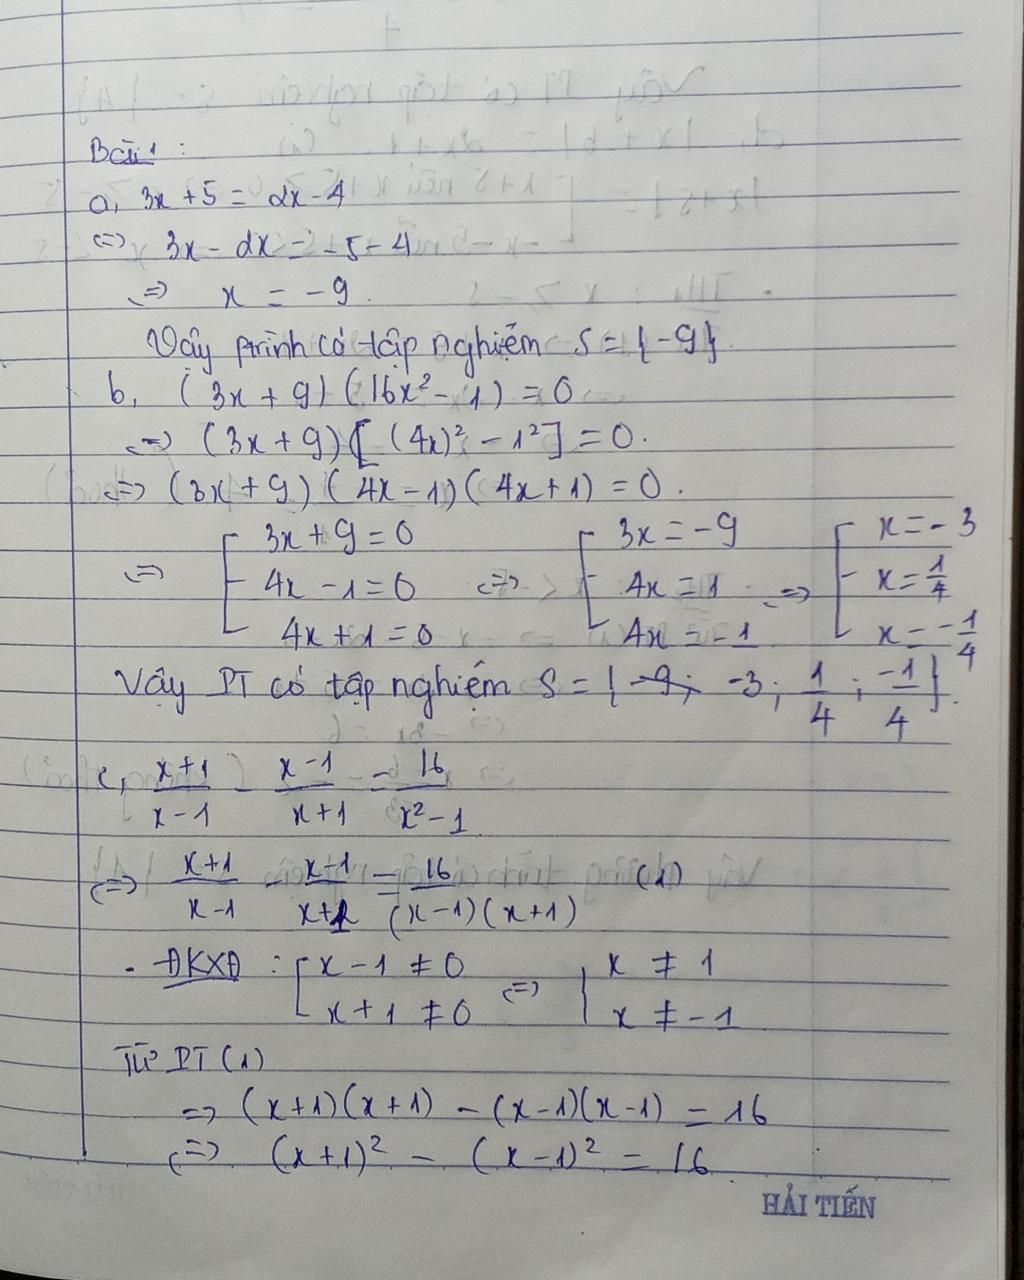 Bài 1 :
a, 3x + 5 = 2x - 4
<=> 3x - 2x = -5 - 4
<=> x = -9.
Vậy ptrình có tập nghiệm S = {-9}
b, (3x + 9)(16x² - 1) = 0
<=> (3x + 9)[(4x)² - 1²] = 0.
<=> (3x + 9)(4x - 1)(4x + 1) = 0.
<=> [ 3x + 9 = 0 <=> [ 3x = -9 <=> [ x = -3
4x - 1 = 0 4x = 1 x = 1/4
4x + 1 = 0 4x = -1 x = -1/4
Vậy PT có tập nghiệm S = { -3; 1/4 ; -1/4 }.
c, (x+1)/(x-1) - (x-1)/(x+1) = 16/(x²-1)
<=> (x+1)/(x-1) - (x-1)/(x+1) = 16/((x-1)(x+1)) (1)
- ĐKXĐ : [ x - 1 ≠ 0 <=> { x ≠ 1
x + 1 ≠ 0 x ≠ -1
Từ PT (1)
=> (x+1)(x+1) - (x-1)(x-1) = 16
<=> (x+1)² - (x-1)² = 16
HẢI TIẾN